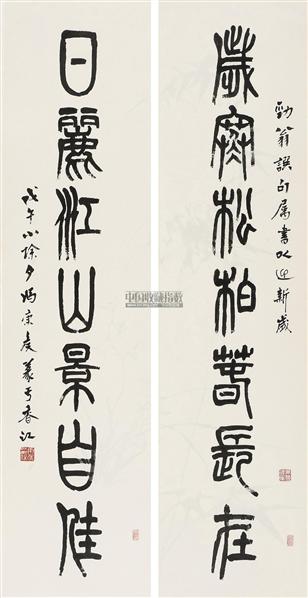 勁翁譔句属書以迎新歲
歲寒松柏春長在
日麗江山景自佳
戊午小除夕馮康矦篆于香江
中国收藏指数